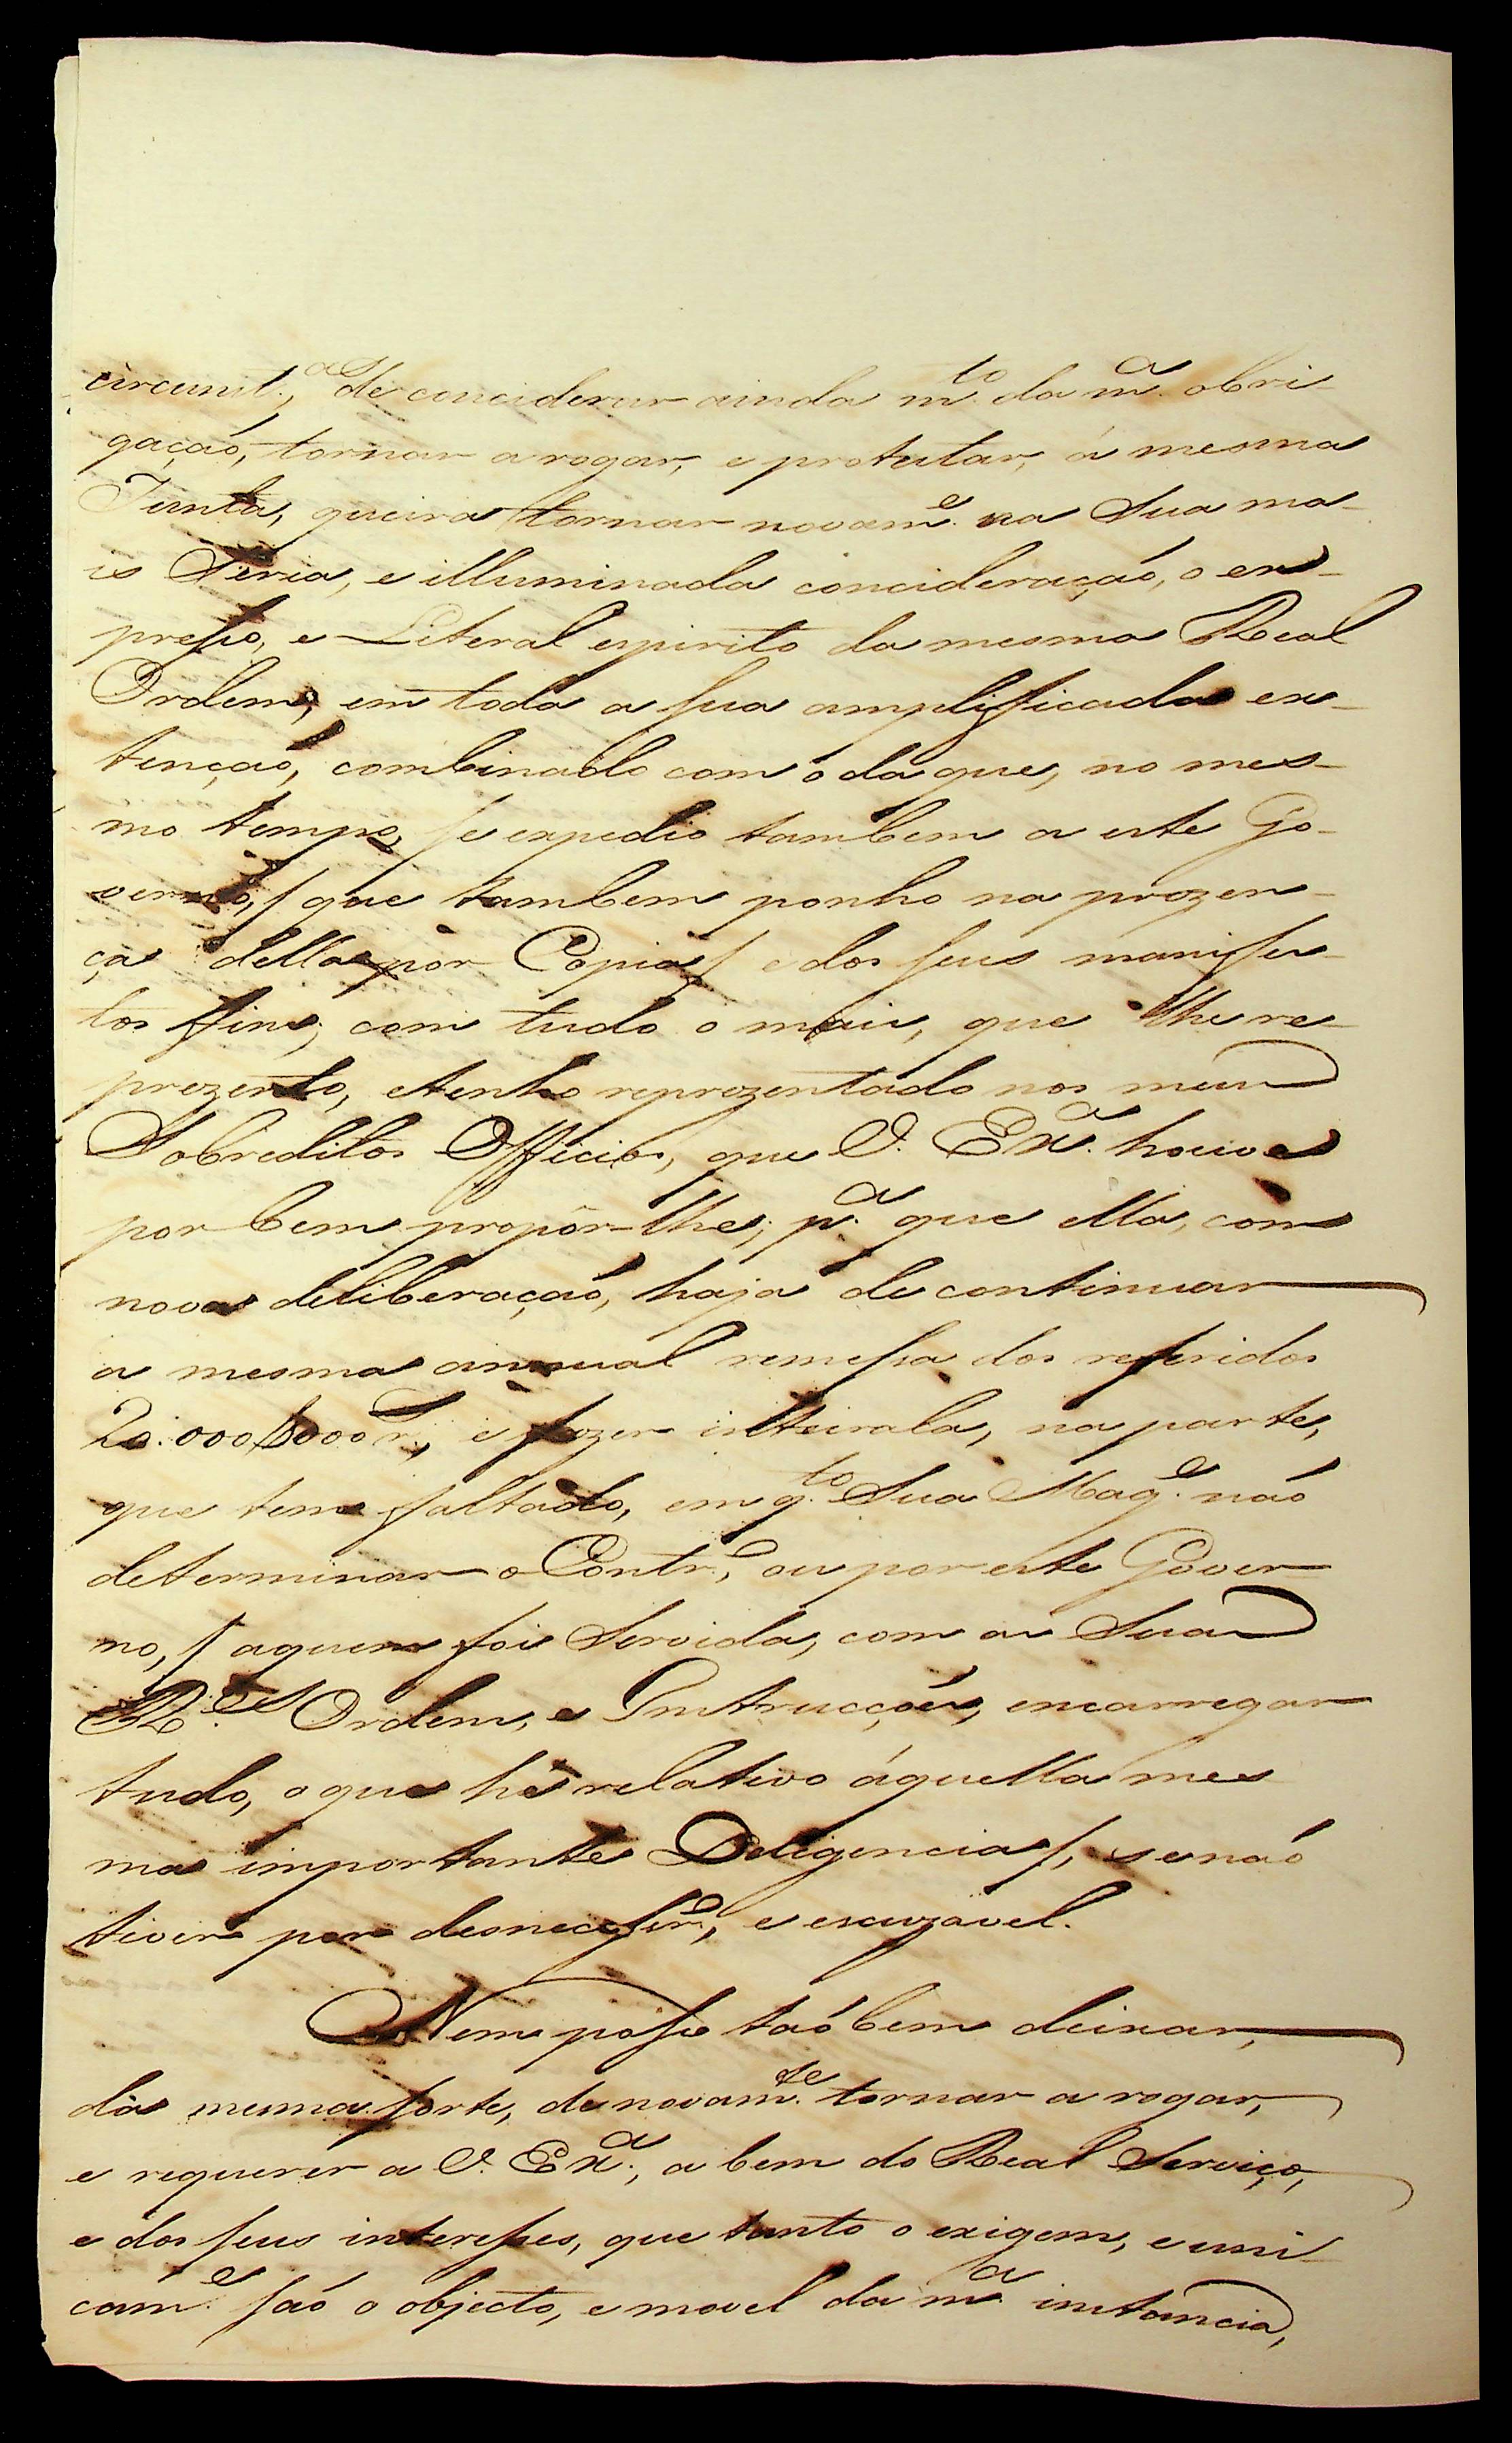 circunst.as, de conciderar ainda m.to da m.a obri-
gaçaõ, tornar a rogar, e protestar, á mesma
Junta, queira tornar novam.e na Sua ma-
is Seria, e illuminada concideraçaõ, o ex-
presso, e Literal espirito da mesma Real
Ordem, em toda a sua amplificada ex-
tençaõ, combinado com o da que, no mes-
mo tempo, se expedio tambem a este Go-
verno, / que tambem ponho na prezen-
ça della por Copia / e dos seus manifes-
tos fins, com tudo o mais, que lhe re-
prezento, e tenho reprezentado nos meus
Sobreditos Officios, que V. Ex.a houve
por bem propôr-lhe; p.a que ella, com
nova deliberaçaõ, haja de continuar
a mesma annual remessa dos referidos
20.000$000 r.s, e fazer inteirala, na parte,
que tem faltado, em q.to Sua Mag.e naõ
determinar o Contr.o, ou por este Gover-
no, / aquem foi Servida, com as Suas
R.es Ordem, e Instrucçoẽs, encarregar
tudo, o que hé relativo áquella mes-
ma importante Deligencia /, se naõ
tiver por desnecessr.o, e escuzavel.
Nem posso taõbem deixar,
da mesma sorte, de novam.te tornar a rogar,
e requerer a V. Ex.a, a bem do Real Serviço,
e dos seus interesses, que tanto o exigem, e uni-
cam.e saõ o objecto, e movel da m.a instancia,